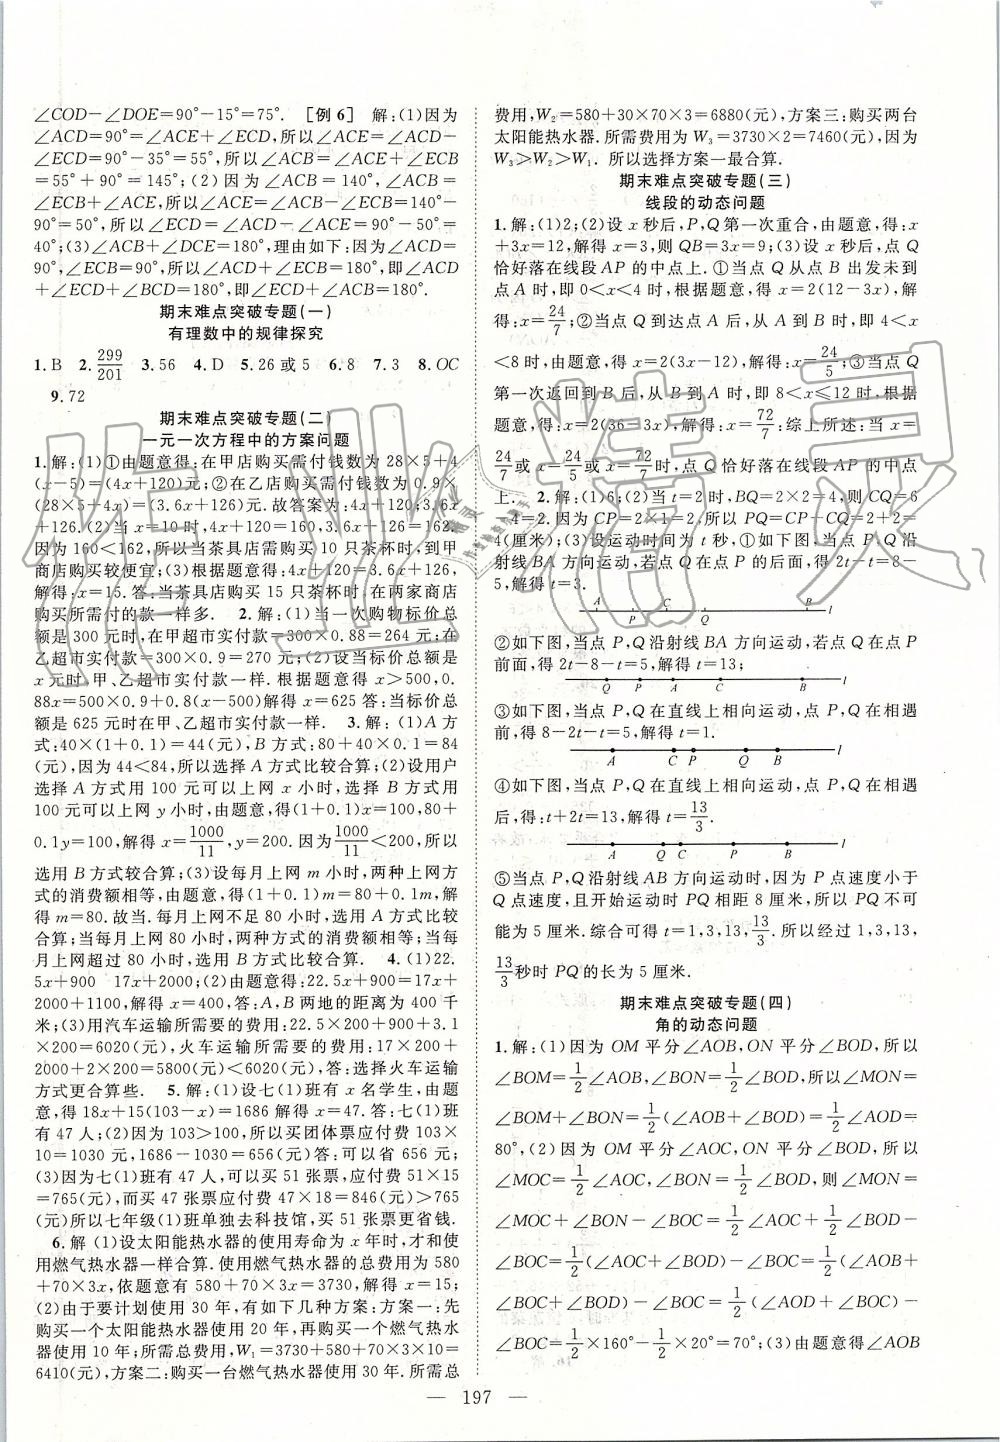 ∠COD-∠DOE=90°-15°=75°. [例6] 解:(1)因为
∠ACD=90°=∠ACE+∠ECD,所以∠ACE=∠ACD-
∠ECD=90°-35°=55°,所以∠ACB=∠ACE+∠ECB=
55°+90°=145°;(2)因为∠ACB=140°,∠ACB=
∠ECB+∠ACE,所以∠ACE=∠ACB-∠ECB=140°-
90°=50°,所以∠ECD=∠ACD-∠ACE=90°-50°=
40°;(3)∠ACB+∠DCE=180°,理由如下:因为∠ACD=
90°,∠ECB=90°,所以∠ACD+∠ECB=180°,所以∠ACD+
∠ECD+∠BCD=180°,所以∠DCE+∠ACB=180°.
期末难点突破专题(一)
有理数中的规律探究
1.B 2.299/201 3.56 4.D 5.26或5 6.8 7.3 8.OC
9.72
期末难点突破专题(二)
一元一次方程中的方案问题
1.解:(1)①由题意得:在甲店购买需付钱数为28×5+4
(x-5)=(4x+120)元;②在乙店购买需付钱数为0.9×
(28×5-4x)=(3.6x+126)元.故答案为:4x+120;3.6x
+126.(2)当x=10时,4x+120=160;3.6x+126=162.
因为160<162,所以当茶具店需购买10只茶杯时,到甲
商店购买较便宜;(3)根据题意得:4x+120=3.6x+126,
解得:x=15.答:当茶具店购买15只茶杯时,在两家商店
购买所需付的款一样多. 2.解:(1)当一次购物标价总
额是300元时,在甲超市实付款=300×0.88=264元;在
乙超市实付款=300×0.9=270元;(2)设当标价总额是
x元时,甲、乙超市实付款一样.根据题意得x>500,0.
88x=500×0.9+0.8(x-500)解得:x=625答:当标价总
额是625元时在甲、乙超市实付款一样. 3.解:(1)A方
式:40×(1+0.1)=44(元),B方式:80+40×0.1=84
(元),因为44<84,所以选择A方式比较合算;(2)设用户
选择A方式用100元可以上网x小时,选择B方式用
100元可以上网y小时,由题意,得(1+0.1)x=100,80+
0.1y=100,解得x=1000/11,y=200.因为1000/11<200,所以
选用B方式较合算;(3)设每月上网m小时,两种上网方
式的消费额相等,由题意,得(1+0.1)m=80+0.1m,解
得m=80.故当.每月上网少于80小时,选用A方式比较
合算;当每月上网80小时,两种方式的消费额相等;当每
月上网多于80小时,选用B方式比较合算. 4.(1)22.
5x+900 17x+2000(2)由题意得:22.5x+900=17x+
2000,解得x=200,2x=400,答:A、B两地的距离为400千
米;(3)用汽车运输所需要的费用:22.5×200+900+3.1
×200×2=6020(元),火车运输所需要的费用:17×200
+2000+2×200×2=5800(元)<6020(元).答:选择火车运输
方式更合算些. 5.解:(1)设七(1)班有x名学生,由题
意,得18x+15(103-x)=1686解得x=47.答:七(1)班
有47人;(2)因为103>100,所以买团体票应付费103×
10=1030元,1686-1030=656元.答:可以省656元;
(3)因为七(1)班有47人,可以买51张票,应付费51×15
=765(元),而买47张票应付费47×18=846(元)>765
(元)所以七年级(1)班单独去科技馆,买51张票更省钱.
6.解(1)设太阳能热水器的使用寿命为x年时,才和使
用燃气热水器一样合算.使用燃气热水器的总费用为580
+70×3x,依题意有580+70×3x=3730,解得x=15;
(2)由于要计划使用30年,有如下几种方案:方案一:先
购买一个太阳能热水器使用20年,再购买一个燃气热水
器使用10年;所需费用,W₁=3730+580+70×3×10=
6410(元),方案二:购买一台燃气热水器使用30年.所需总
费用,W₂=580+30×70×3=6880(元),方案三:购买两台
太阳能热水器.所需费用为W₃=3730×2=7460(元),因为
W₃>W₂>W₁. 所以选择方案一最合算.
期末难点突破专题(三)
线段的动态问题
1.解:(1)2;(2)设x秒后,P,Q第一次重合,由题意,得:x
+3x=12,解得x=3,则QB=3x=9;(3)设x秒后,点Q
恰好落在线段AP的中点上.①当点Q从点B出发未到
点A时,即0<x<4时,根据题意,得:x=2(12-3x),解
得:x=24/7;②当点Q到达点A后,从A到B时,即4<x
<8时,由题意,得:x=2(3x-12),解得:x=24/5;③当点Q
第一次返回到B后,从B到A时,即8<x≤12时,根据题
意,得:x=2(36-3x),解得:x=72/7;综上所述:当x=
24/7或x=24/5或x=72/7时,点Q恰好落在线段AP的中点
上. 2.解:(1)6;(2)当t=2时,BQ=2×2=4,则CQ=6
-4=2.因为CP=2×1=2,所以PQ=CP+CQ=2+2=
4(厘米);(3)设运动时间为t秒,①如下图,当点P,Q沿
射线BA方向运动,若点Q在点P的后面,得2t-t=8-
5,解得t=3.
A P C Q B l
②如下图,当点P,Q沿射线BA方向运动,若点Q在点P
前面,得2t-8-t=5,解得t=13;
Q P A C B l
③如下图,当点P,Q在直线上相向运动,点P,Q在相遇
前,得8-2t-t=5,解得t=1.
A C P Q B l
④如下图,当点P,Q在直线上相向运动,点P,Q在相遇
后,得:t+2t=13,解得t=13/3.
A Q C P B l
⑤当点P,Q沿射线AB方向运动时,因为P点速度小于
Q点速度,且开始运动时PQ相距8厘米,所以PQ不可
能为5厘米.综合可得t=1,3,13,13/3.所以经过1,3,13,
13/3秒时PQ的长为5厘米.
期末难点突破专题(四)
角的动态问题
1.解:(1)因为OM平分∠AOB,ON平分∠BOD,所以
∠BOM=1/2∠AOB,∠BON=1/2∠BOD,所以∠MON=
∠BOM+∠BON=1/2(∠AOB+∠BOD)=1/2∠AOD=
80°,(2)因为OM平分∠AOC,ON平分∠BOD,所以
∠MOC=1/2∠AOC,∠BON=1/2∠BOD,则∠MON=
∠MOC+∠BON-∠BOC=1/2∠AOC+1/2∠BOD-
∠BOC=1/2(∠AOC+∠BOD)-∠BOC=1/2(∠AOB
+∠BOC+∠BOD)-∠BOC=1/2(∠AOD+∠BOC)
-∠BOC=1/2×160°-1/2×20°=70°;(3)由题意得∠AOB
— 197 —
作业精灵